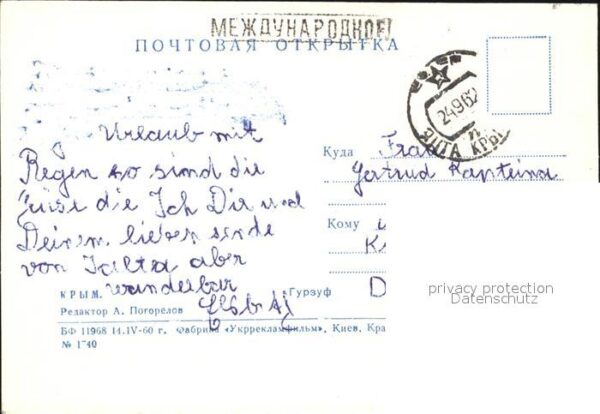 МЕЖДУНАРОДНОЕ
ПОЧТОВАЯ ОТКРЫТКА
24962
ЯЛТА КРЫ
Urlaub mit
Regen so sind die
die Ich Dir und
Deinen lieben sende
von Jalta aber
wunderbar
Куда Frau
Gertrud Kapteina
Кому
К
D
КРЫМ. Гурзуф
Редактор А. Погорелов
БФ 11968 14.IV-60 г. Фабрика «Укррекламфильм», Киев, Кра
№ 1740
privacy protection
Datenschutz